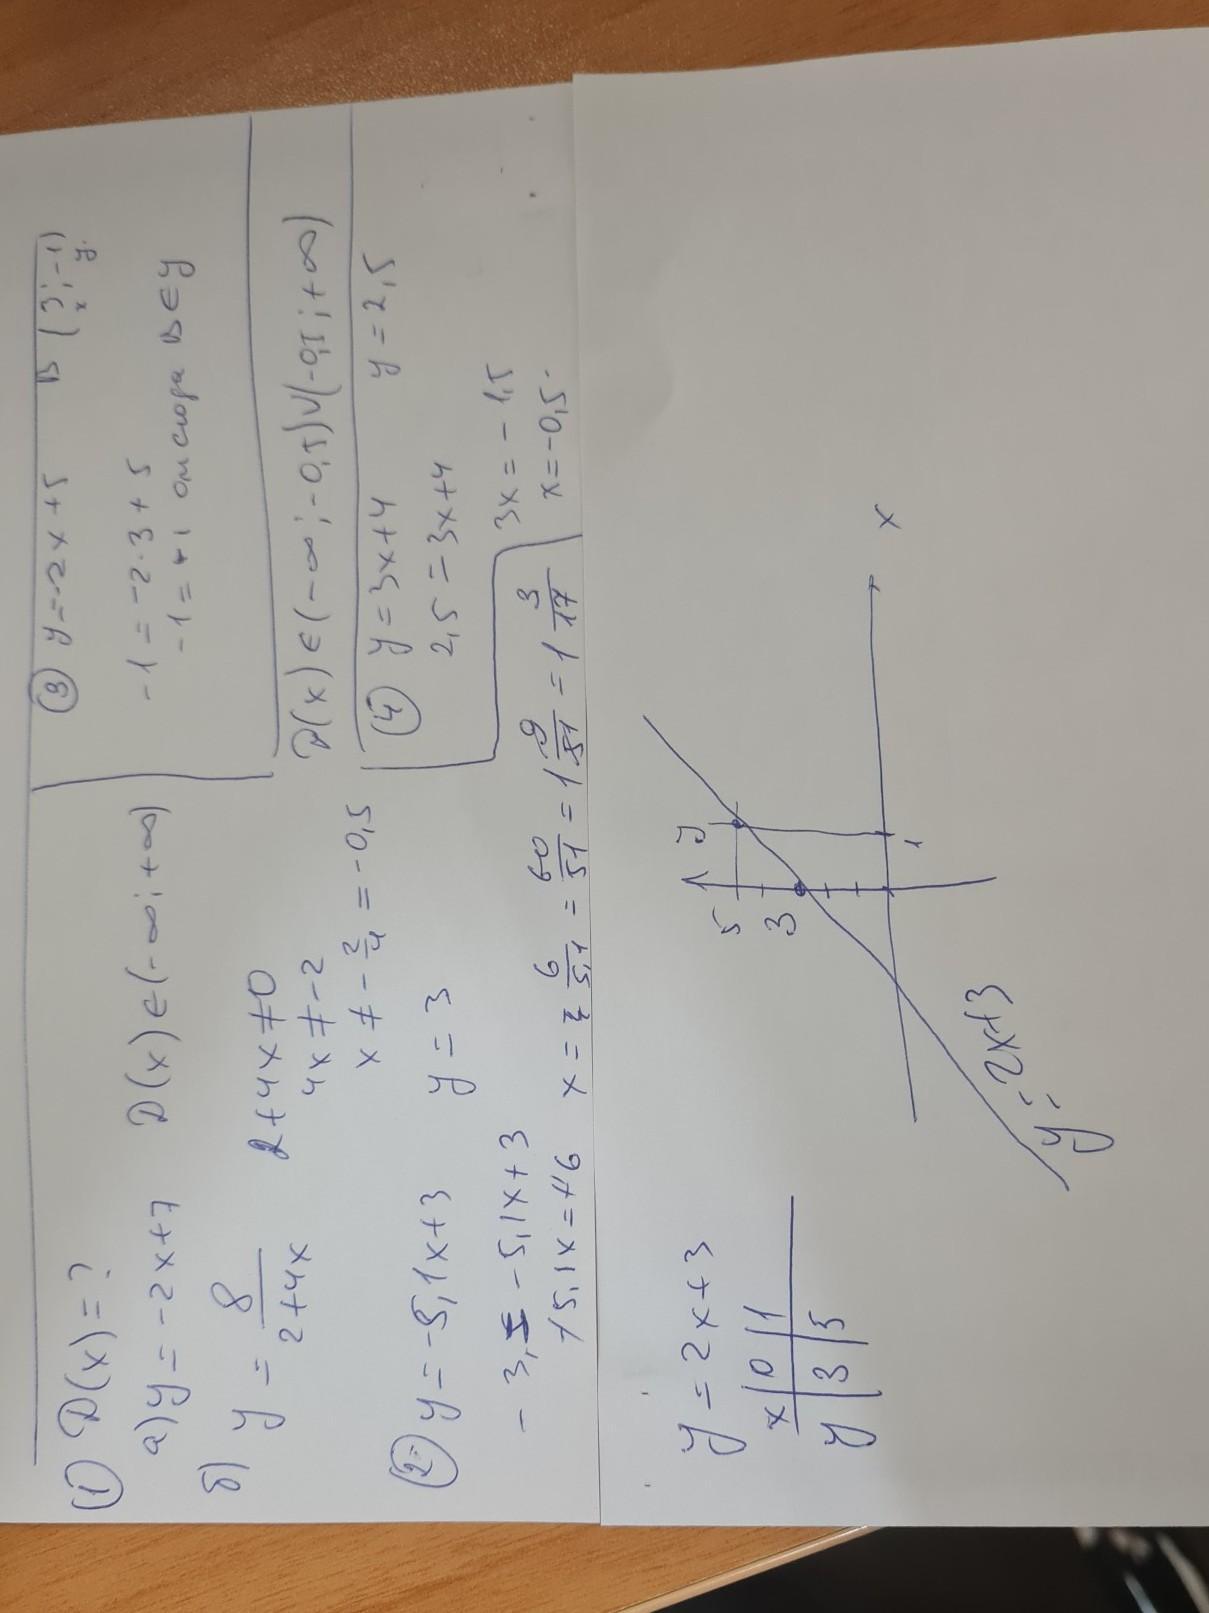 ① D(x)=?
а) y=-2x+7 D(x)∈(-∞;+∞)
б) y = 8/(2+4x) 2+4x≠0
4x≠-2
x≠-2/4=-0,5
D(x)∈(-∞;-0,5)∪(-0,5;+∞)
② y=-5,1x+3 y=3
-3 = -5,1x+3
5,1x=+6 x= 6/5,1 = 60/51 = 1 9/51 = 1 3/17
③ y=-2x+5 B(3;-1)
x y
-1=-2·3+5
-1=-1 отсюда B∈y
④ y=3x+4 y=2,5
2,5=3x+4
3x=-1,5
x=-0,5.
y=2x+3
x|0|1
y|3|5
y
5
3
1
x
y=2x+3